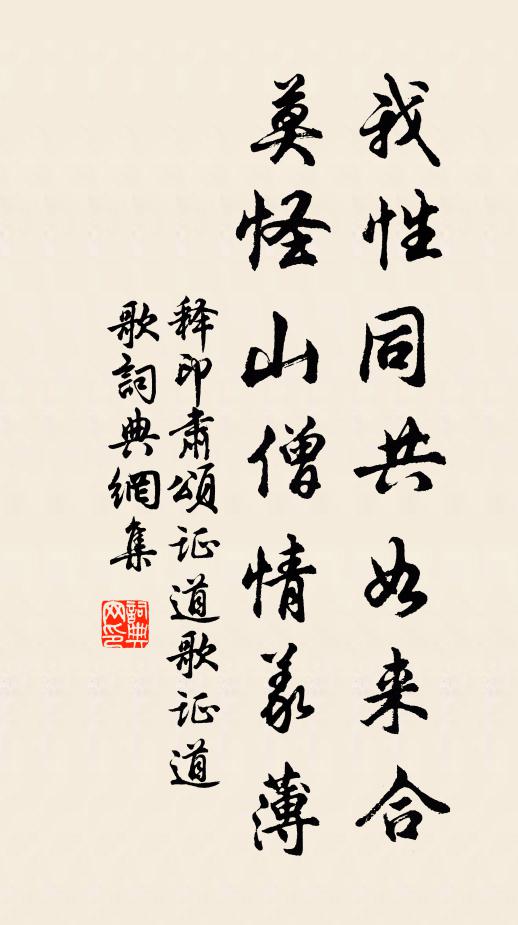 我性同共如来合
莫怪山僧情義薄
釋印肅頌证道歌证道
歌詞典網集
詞典
网印